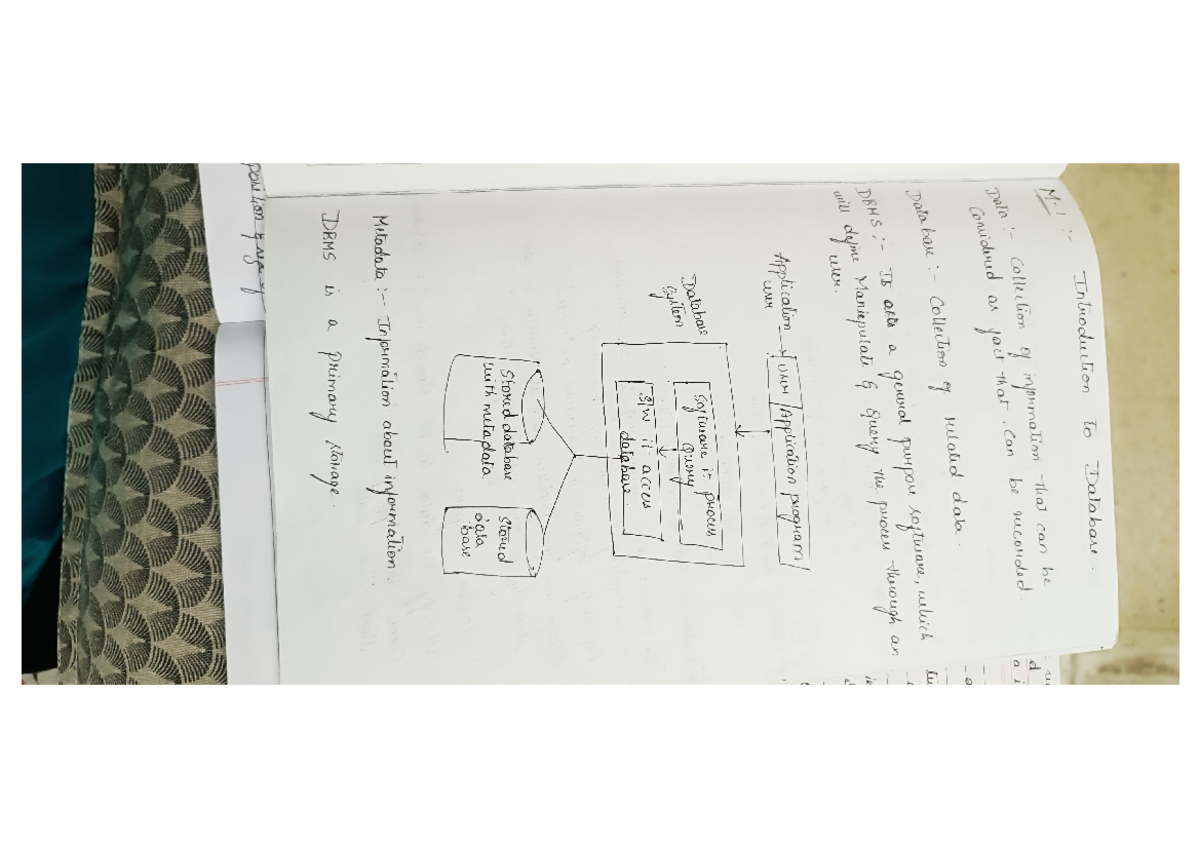 Introduction to Database.
M-1 :-
Data :- Collection of information that can be
Considered as fact that can be recorded.
Database :- Collection of related data.
DBMS :- It acts a general purpose software, which
will define Manipulate & Query the process through an
user.
Application
user
user/Application program
Database
System
Software it process
Query
S/W it access
database.
Stored database
with metadata
Stored
data
base
Metadata :- Information about information.
DBMS is a primary storage.